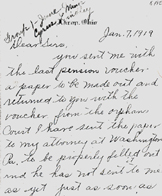 Jan. 7, 1919
Dear Sirs,
you sent me with
the last pension voucher
a paper to be made out and
returned to you with the
voucher from the orphan
Court I have sent the paper
to my attorney at Washington
Pa. to be properly filled out
and he has not sent to me
as yet just as soon as